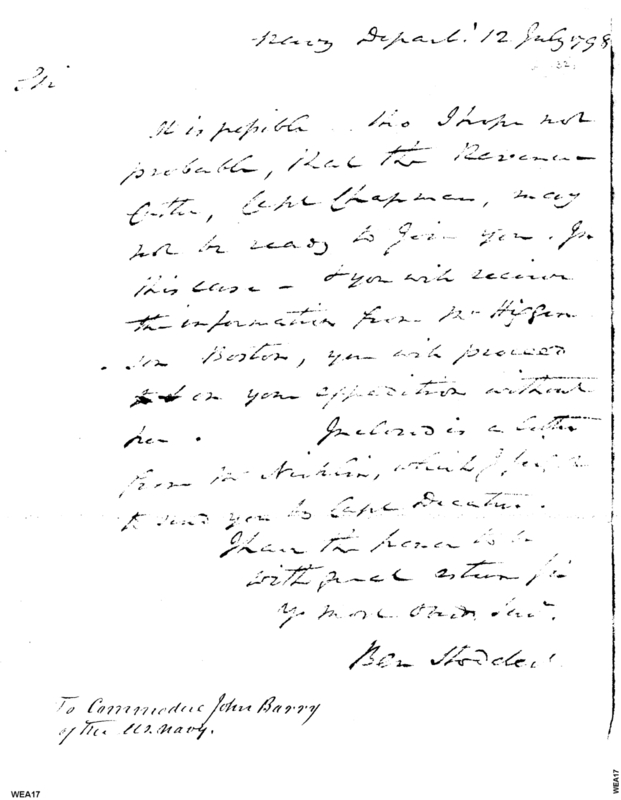 Navy Depart.t 12 July 1798
Sir
It is possible tho I hope not
probable, that the Revenue
Cutter, Capt Chapman, may
not be ready to Join you. In
this case - & you will receive
the information from Mr Higgin
son Boston, you will proceed
on your expedition without
her. Inclosed is a letter
from Mr Nicklin, which I
to send you to Capt Decatur.
I have the honor to be
with great esteem Sir
Yr more Obed. Serv.
Ben Stoddert
To Commodore John Barry
of the U.S. Navy.
WEA17
WEA17